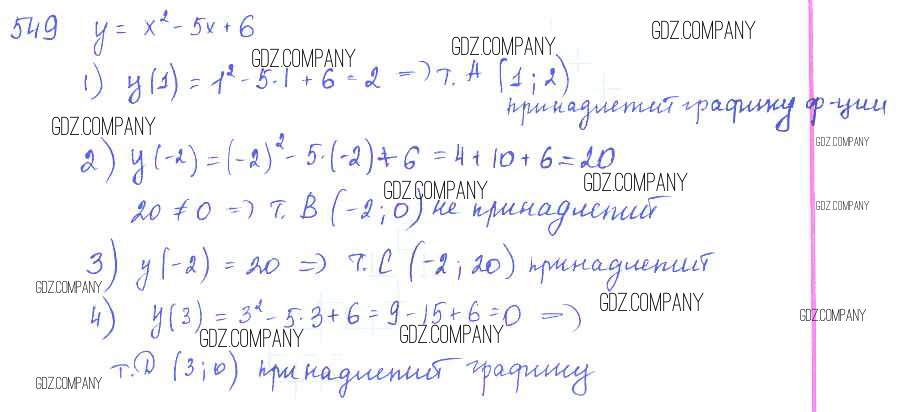 549 y = x² - 5x + 6
GDZ.COMPANY GDZ.COMPANY GDZ.COMPANY
1) y(1) = 1² - 5·1 + 6 = 2 => т. A (1; 2)
принадлежит графику ф-ции
GDZ.COMPANY GDZ.COMPANY
2) y(-2) = (-2)² - 5·(-2) + 6 = 4 + 10 + 6 = 20
GDZ.COMPANY GDZ.COMPANY
20 ≠ 0 => т. B (-2; 0) не принадлежит
GDZ.COMPANY
3) y(-2) = 20 => т. C (-2; 20) принадлежит
GDZ.COMPANY GDZ.COMPANY
4) y(3) = 3² - 5·3 + 6 = 9 - 15 + 6 = 0 =>
GDZ.COMPANY GDZ.COMPANY GDZ.COMPANY
т. D (3; 0) принадлежит графику
GDZ.COMPANY